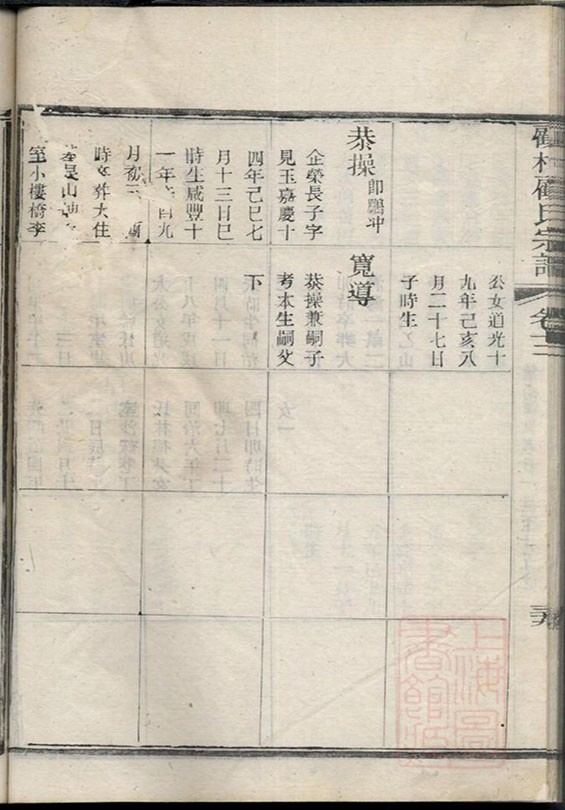 顧氏宗譜
卷十二
公女道光十
九年己亥八
月二十七日
子時生
恭操
即鵬冲
企榮長子字
見玉嘉慶十
四年己巳七
月十三日巳
時生咸豐十
一年 酉九
月初三
時 葬大住
山
室小樓橋李
寬導
恭操兼嗣子
考本生嗣父
下
上海圖書館